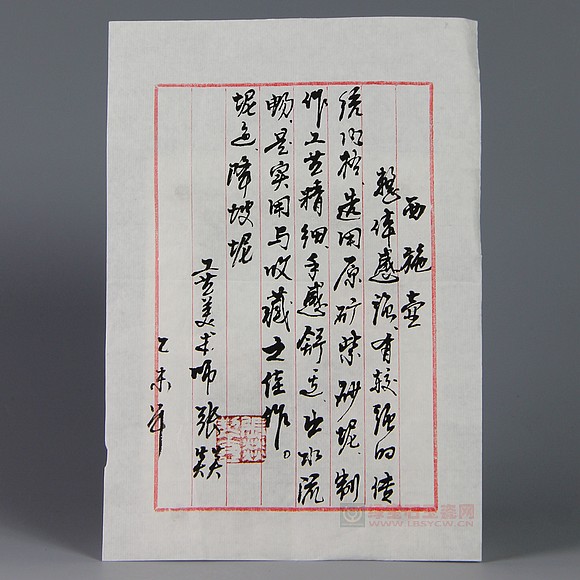 西施壶
整体感强、有较强的传
统风格选用原矿紫砂坭、制
作工艺精细、手感舒适出水流
畅、是实用与收藏之佳作。
坭色、降坡坭
工艺美术师张
乙未年
WWW.LBSYCW.CN